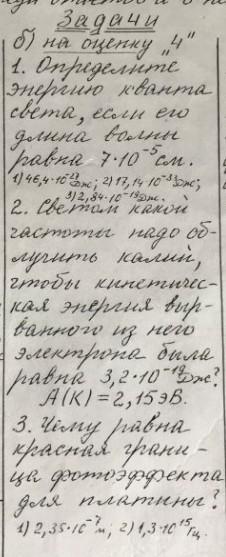 Задачи
б) на оценку „4"
1. Определите
энергию кванта
света, если его
длина волны
равна 7·10⁻⁵ см.
1) 46,4·10⁻²⁷ Дж; 2) 17,14·10⁻³³ Дж;
3) 2,84·10⁻¹⁹ Дж.
2. Светом какой
частоты надо об-
лучить калий,
чтобы кинетичес-
кая энергия выр-
ванного из него
электрона была
равна 3,2·10⁻¹⁹ Дж?
A(K) = 2,15 эВ.
3. Чему равна
красная грани-
ца фотоэффекта
для платины?
1) 2,35·10⁻⁷ м; 2) 1,3·10¹⁵ Гц.